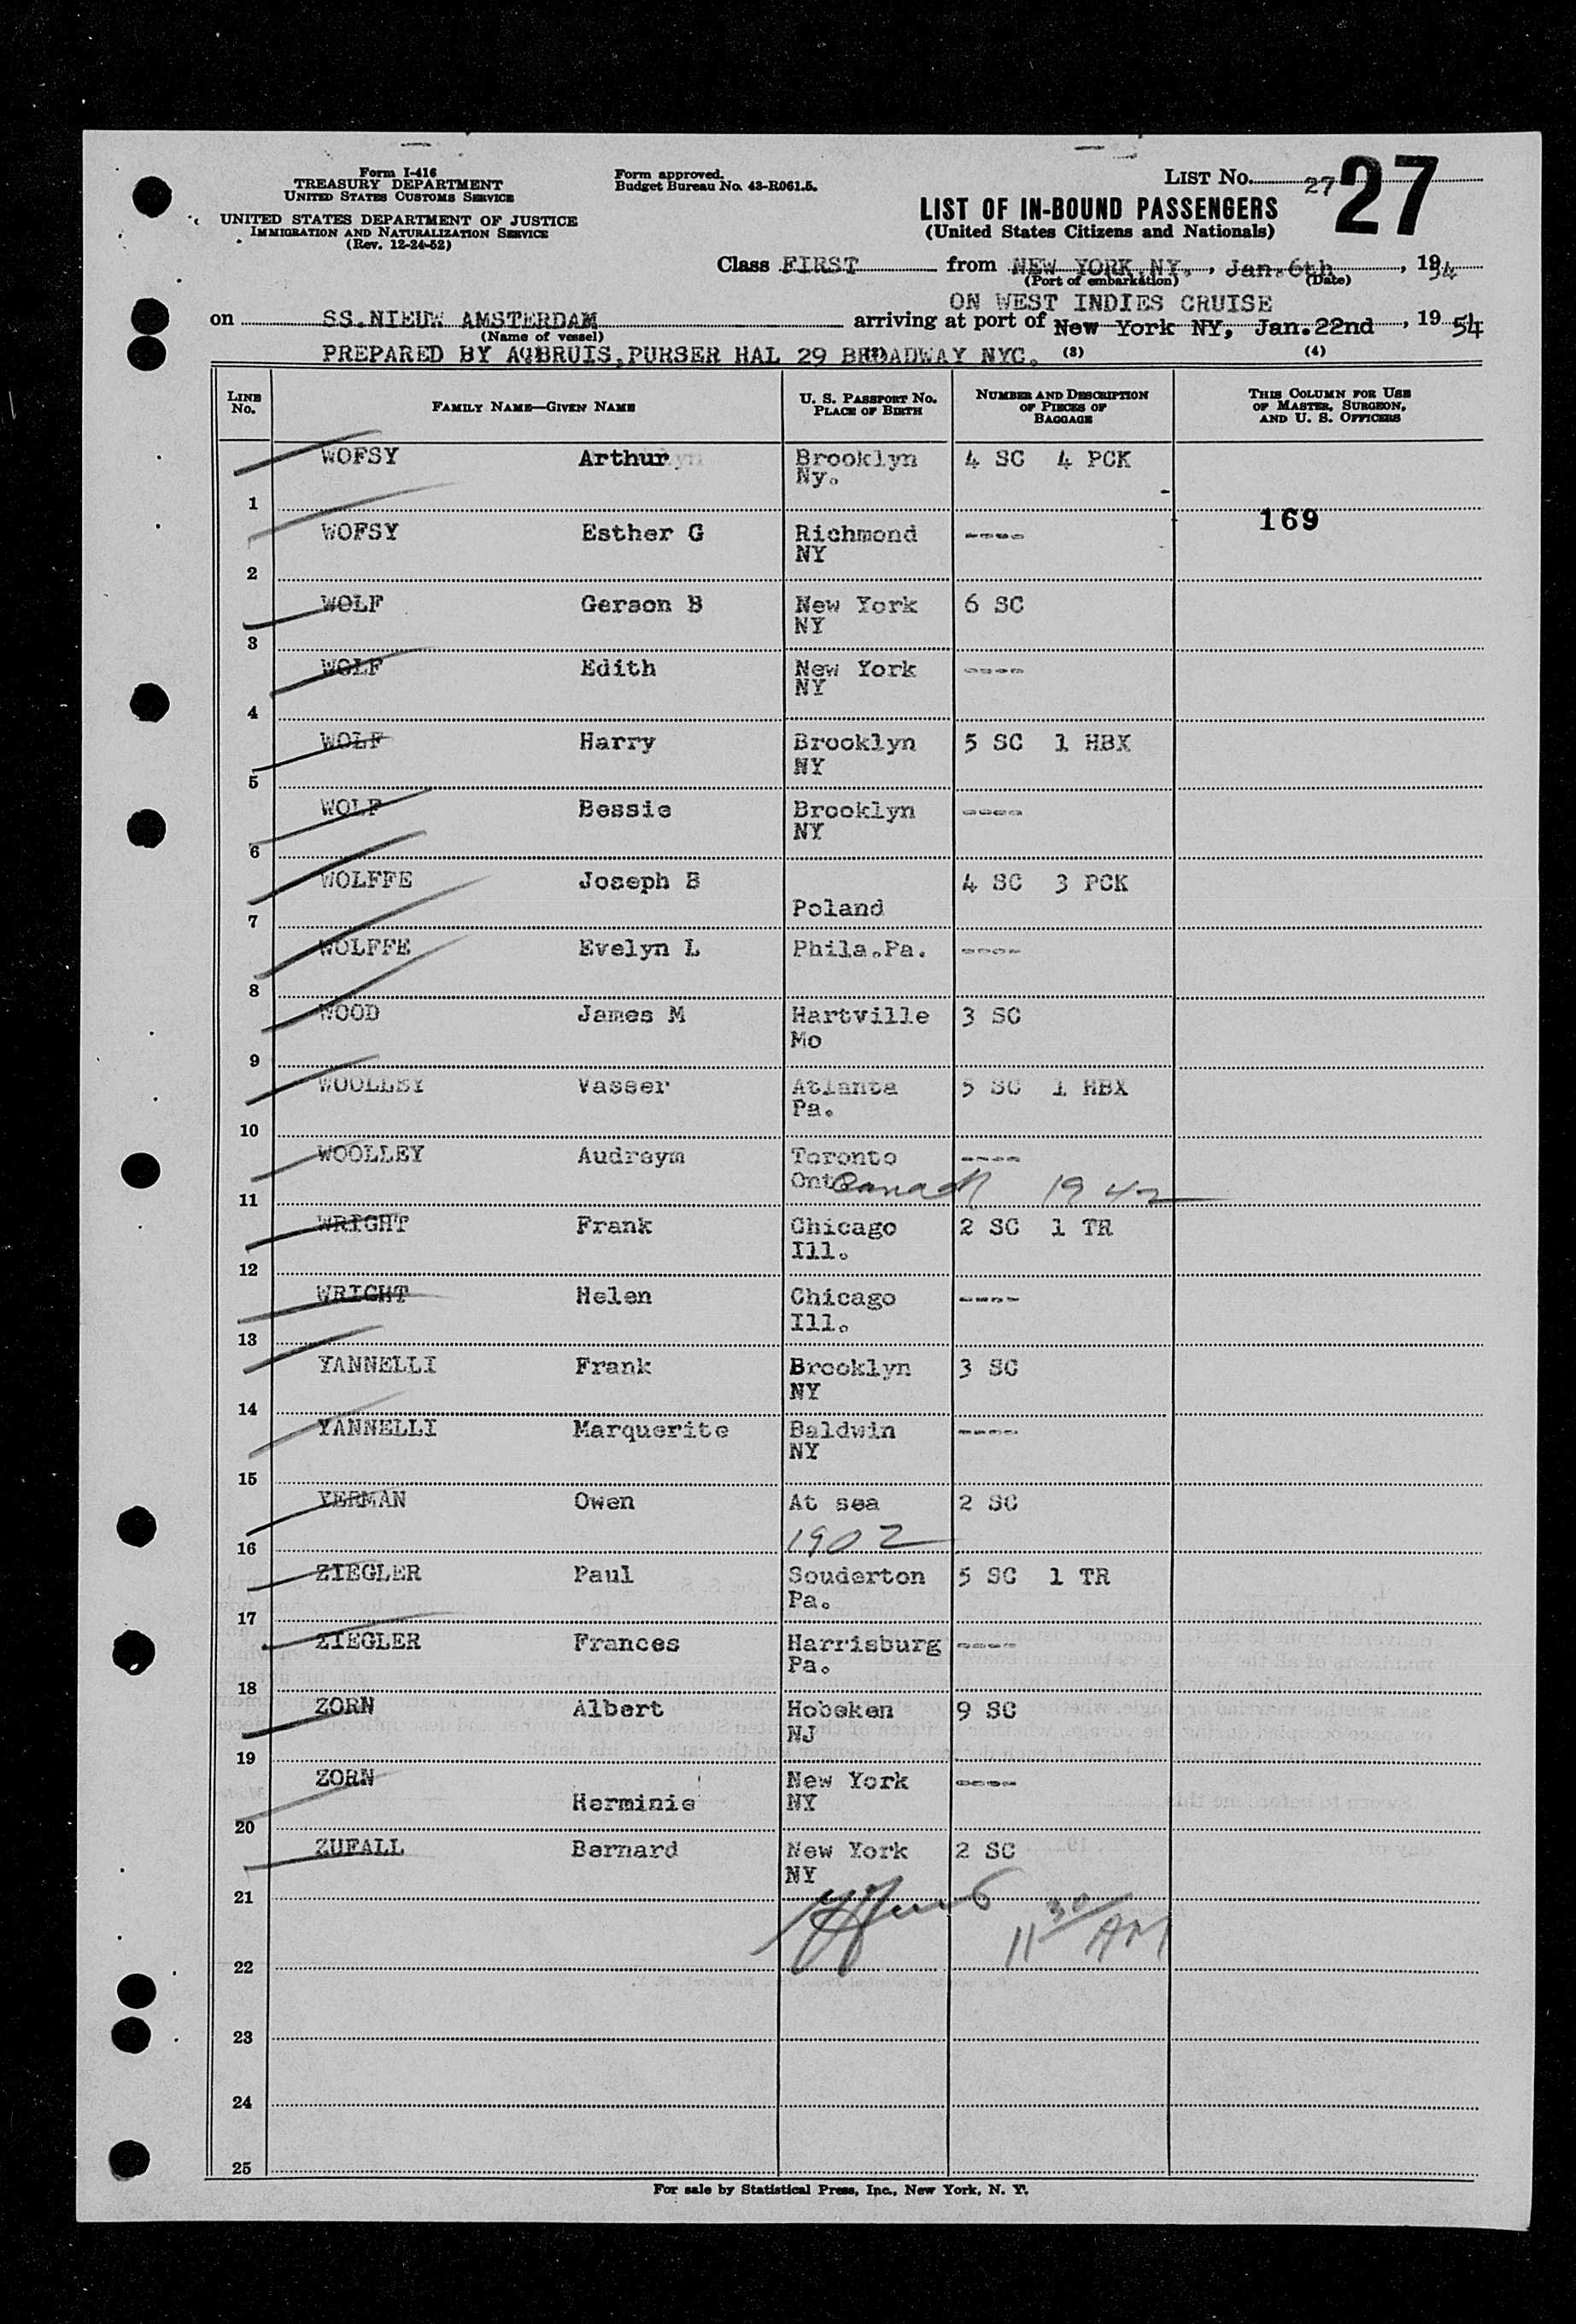 Form I-416
TREASURY DEPARTMENT
UNITED STATES CUSTOMS SERVICE
UNITED STATES DEPARTMENT OF JUSTICE
IMMIGRATION AND NATURALIZATION SERVICE
(Rev. 12-24-52)
Form approved.
Budget Bureau No. 43-R061.5.
LIST No. 27 27
LIST OF IN-BOUND PASSENGERS
(United States Citizens and Nationals)
Class FIRST from NEW YORK NY. , Jan. 6th , 1954
(Port of embarkation) (Date)
ON WEST INDIES CRUISE
on SS.NIEUW AMSTERDAM arriving at port of New York NY, Jan. 22nd , 19 54
(Name of vessel)
PREPARED BY BRUIS,PURSER HAL 29 BROADWAY NYC. (3) (4)
LINE No. FAMILY NAME—GIVEN NAME U. S. PASSPORT NO. PLACE OF BIRTH NUMBER AND DESCRIPTION OF PIECES OF BAGGAGE THIS COLUMN FOR USE OF MASTER, SURGEON, AND U. S. OFFICERS
WOFSY Arthur Brooklyn 4 SC 4 PCK
Ny.
1
169
WOFSY Esther G Richmond ----
NY
2
WOLF Gerson B New York 6 SC
NY
3
WOLF Edith New York ----
NY
4
WOLF Harry Brooklyn 5 SC 1 HBX
NY
5
WOLF Bessie Brooklyn ----
NY
6
WOLFFE Joseph B 4 SC 3 PCK
Poland
7
WOLFFE Evelyn L Phila.Pa. ----
8
WOOD James M Hartville 3 SC
Mo
9
WOOLLEY Vasser Atlanta 5 SC 1 HBX
Pa.
10
WOOLLEY Audraym Toronto ----
Ont Canada 1942
11
WRIGHT Frank Chicago 2 SC 1 TR
Ill.
12
WRIGHT Helen Chicago ----
Ill.
13
YANNELLI Frank Brooklyn 3 SC
NY
14
YANNELLI Marquerite Baldwin ----
NY
15
YERMAN Owen At sea 2 SC
1902
16
ZIEGLER Paul Souderton 5 SC 1 TR
Pa.
17
ZIEGLER Frances Harrisburg ----
Pa.
18
ZORN Albert Hoboken 9 SC
NJ
19
ZORN New York ----
Herminie NY
20
ZUFALL Bernard New York 2 SC
NY
21
11 30 AM
22
23
24
25
For sale by Statistical Press, Inc., New York, N. Y.